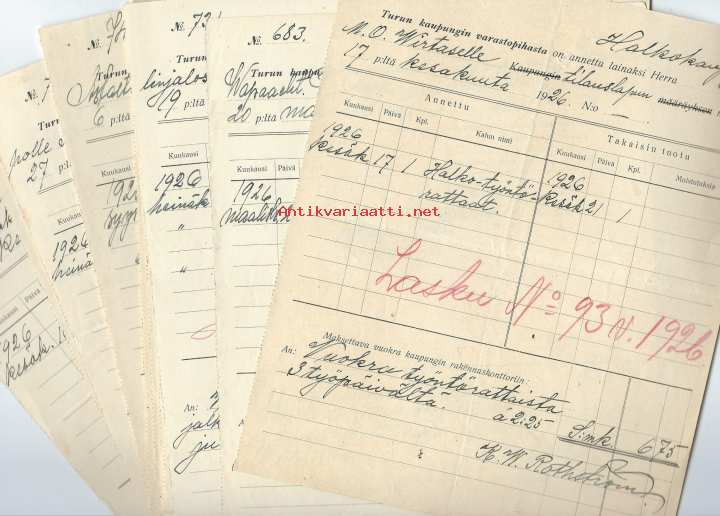 Halkokau
Turun kaupungin varastopihasta on annettu lainaksi Herra
M. O. Wirtaselle Kaupungin tilauslapun määräyksen
17 p:ltä kesäkuuta 1926. N:o —
Annettu
Takaisin tuotu
Kuukausi Päivä Kpl. Kalun nimi Kuukausi Päivä Kpl. Muistutuksia
1926 1926
kesäk. 17 1 Halko-työntö- kesäk 21 1
rattaat.
Lasku No 93 v. 1926
Maksettava vuokra kaupungin rakennuskonttoriin:
An: Vuokra työntörattaista
3 työpäivältä. á 2:25 S:mk 6 75
K. W. Rothström
№ 683.
Turun kaupu
20 p:ltä maa
Kuukausi Päivä
1926
maalisk.
An:
№ 73
Turun
linjalos
19 p:ltä
Kuukausi Päivä
1926
heinäk
"
"
An:
jalk
ju
№
Turun
6 p:ltä
Kuukausi
192
№ 7
Tur
polle
27 p:ltä
Kuukausi
1926
heinä
Kuukausi Päivä
1926
kesäk.
Antikvariaatti.net